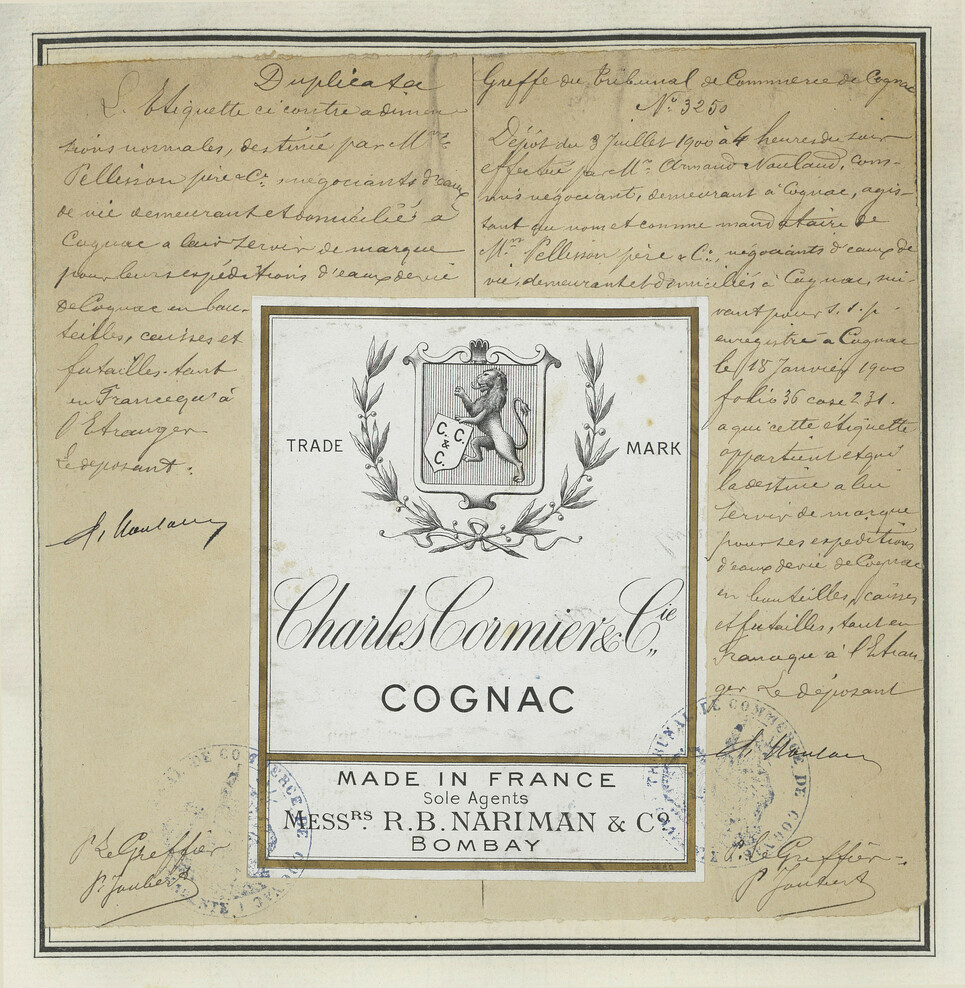 Duplicata
L'Etiquette ci contre a dimen-
sions normales, destinée par M.rs
Pellisson père & Cie, négociants d'eaux
de vie demeurant et domiciliés à
Cognac a leur servir de marque
pour leurs expéditions d'eaux de vie
de Cognac en bou-
teilles, caisses et
futailles, tant
en France qu'à
l'Etranger
Le déposant:
Greffe du Tribunal de Commerce de Cognac
No 3250
Dépôt du 3 Juillet 1900 à 4 heures du soir
effectué par Mr. Armand Nouland, com-
mis négociant, demeurant à Cognac, agis-
sant au nom et comme mandataire de
M.rs Pellisson père & Cie, négociants d'eaux de
vie, demeurant et domiciliés à Cognac, sui-
vant pour s. s. p.
enregistré à Cognac
le 18 Janvier 1900
folio 36 case 231.
a qui cette étiquette
appartient et qui
la destine a lui
servir de marque
pour ses expéditions
d'eaux de vie de Cognac
en bouteilles, caisses
et futailles, tant en
France qu'à l'Etran-
ger Le déposant
C. C. & C.
TRADE MARK
Charles Cormier & Cie
COGNAC
MADE IN FRANCE
Sole Agents
MESSRS. R.B. NARIMAN & Co
BOMBAY
P. Le Greffier
P. Joubert
P. Le Greffier
P. Joubert
TRIBUNAL DE COMMERCE DE COGNAC